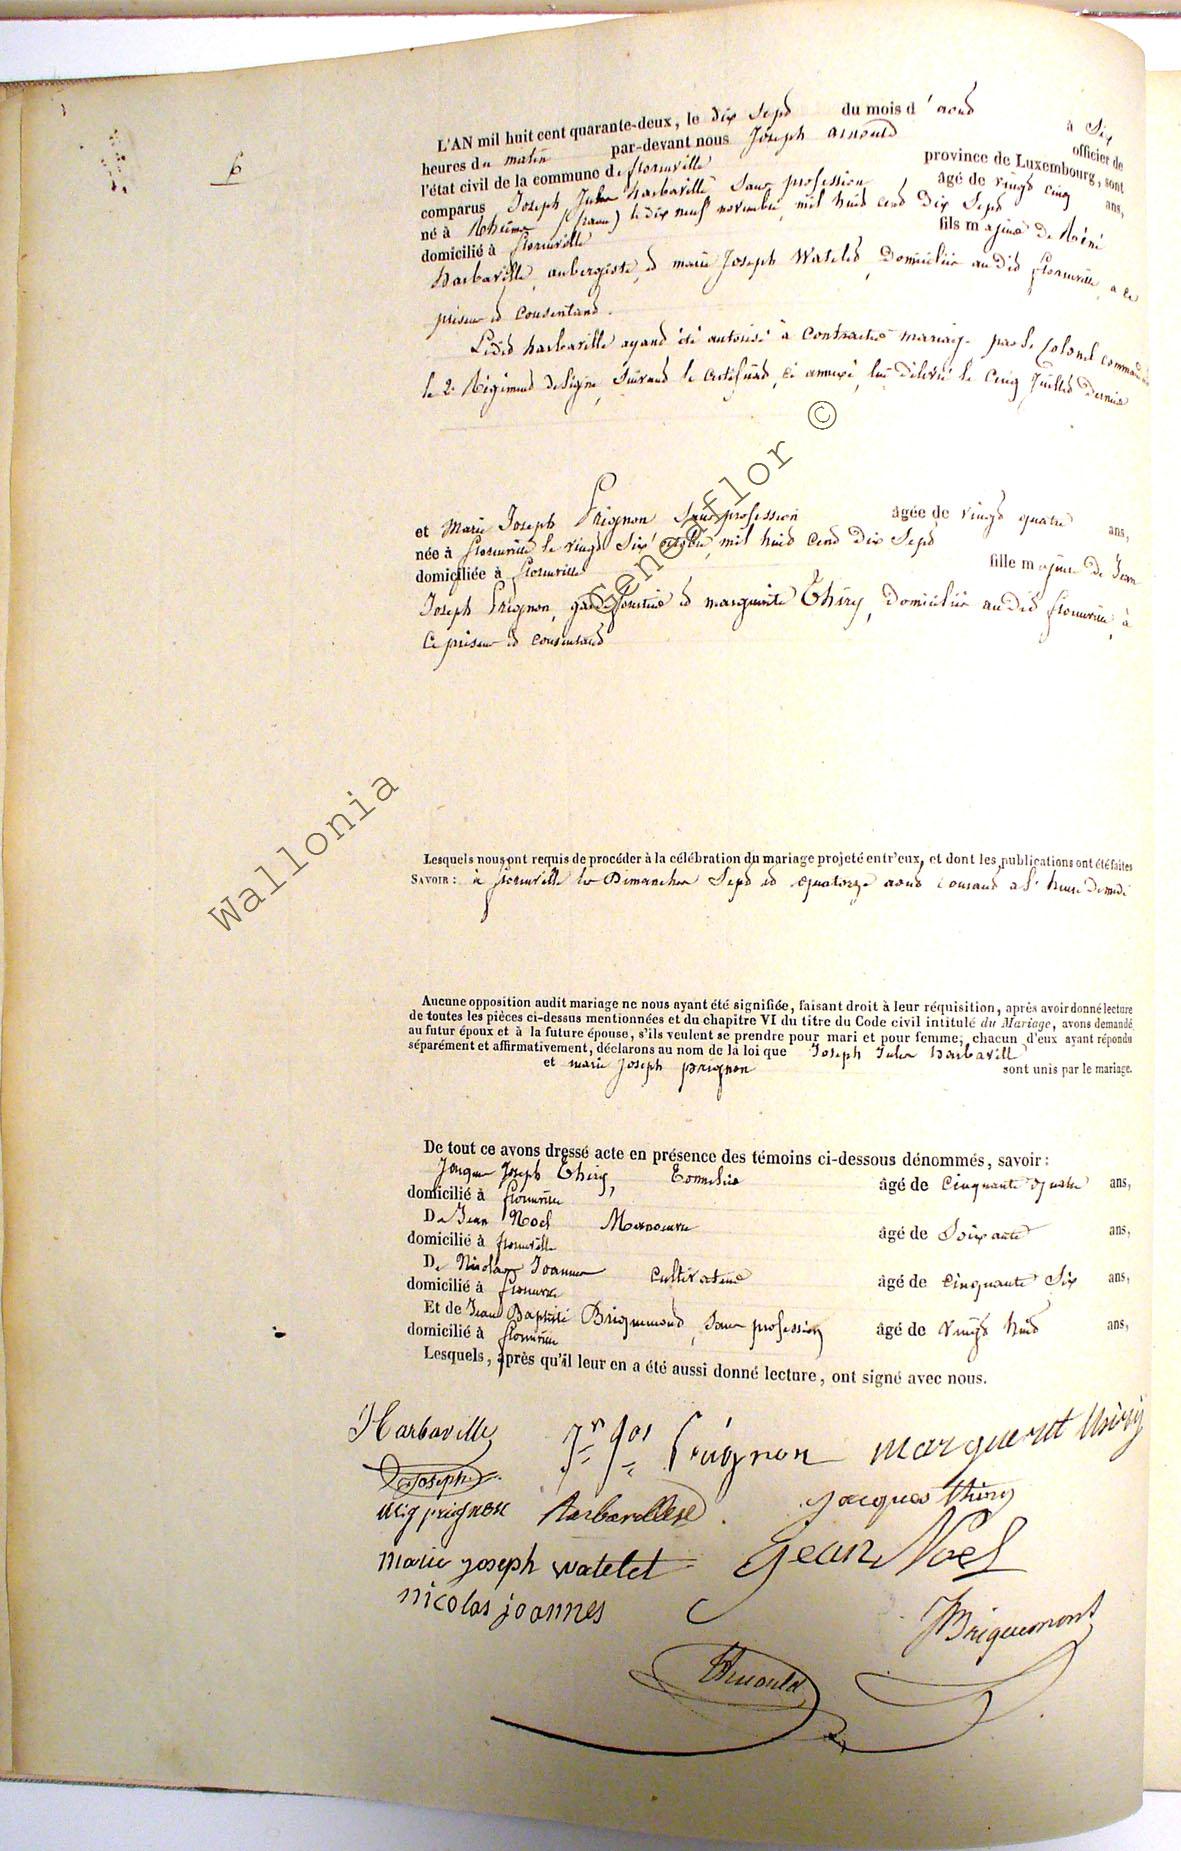 6
L'AN mil huit cent quarante-deux, le dix Sept du mois d'aout à Six
heures du matin par-devant nous Joseph Arnould officier de
l'état civil de la commune de florenville province de Luxembourg, sont
comparus Joseph Jules harbaville Sans profession âgé de vingt cinq ans,
né à Rheims le dix neuf novembre, mil huit cent dix Sept
domicilié à florenville fils majeur de Réné
harbaville, aubergiste, et marie Joseph Watelet, Domiciliés audit florenville, a ce
présens et consentant.
Ledit harbaville ayant été autorisé à contracter mariage par le Colonel command
le 2e Régiment de ligne, Suivant le certificat, ci annexé, lui délivré le cinq Juillet dernier
et Marie Joseph Prignon Sans profession âgée de vingt quatre ans,
née à florenville le vingt Six octobre, mil huit cent dix Sept
domiciliée à florenville fille majeure de Jean
Joseph Prignon, garde forestier et marguerite Thiry, domiciliés audit florenville, à
ce présens et consentant
Lesquels nous ont requis de procéder à la célébration du mariage projeté entr'eux, et dont les publications ont été faites
SAVOIR : à florenville les Dimanches Sept et quatorze aout courant a l'heure de midi
Aucune opposition audit mariage ne nous ayant été signifiée, faisant droit à leur réquisition, après avoir donné lecture
de toutes les pièces ci-dessus mentionnées et du chapitre VI du titre du Code civil intitulé du Mariage, avons demandé
au futur époux et à la future épouse, s'ils veulent se prendre pour mari et pour femme; chacun d'eux ayant répondu
séparément et affirmativement, déclarons au nom de la loi que Joseph Jules harbaville
et marie Joseph prignon sont unis par le mariage.
De tout ce avons dressé acte en présence des témoins ci-dessous dénommés, savoir :
Jacques Joseph Thiry, Tonnelier âgé de Cinquante quatre ans,
domicilié à florenville
De Jean Noel Manoeuvre âgé de Soixante ans,
domicilié à florenville
De Nicolas Joannes cultivateur âgé de cinquante Six ans,
domicilié à florenville
Et de Jean Baptiste Briquemont, Sans profession âgé de vingt huit ans,
domicilié à florenville
Lesquels, après qu'il leur en a été aussi donné lecture, ont signé avec nous.
Harbaville Jn Jos Prignon marguerit thiry
Joseph
mig prignon harbaville jacques thiry
marie joseph watelet Jean Noel
nicolas joannes JBriquemont
Arnould
Wallonia Geneaflor ©